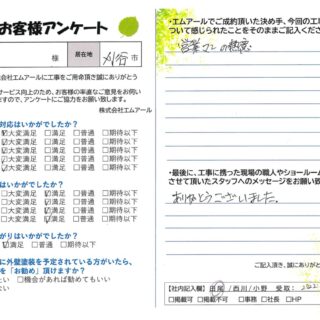 お客様アンケート
様
居在地
刈谷市
株式会社エムアールに工事をご用命頂き誠にありがとう
サービス向上のため、お客様の率直なご意見をお伺い
ますので、アンケートにご協力をお願い致します。
株式会社エムアール
対応はいかがでしたか？
大変満足 □満足 □普通 □期待以下
大変満足 □満足 □普通 □期待以下
大変満足 □満足 □普通 □期待以下
はいかがでしたか？
□大変満足 満足 □普通 □期待以下
□大変満足 満足 □普通 □期待以下
□大変満足 満足 □普通 □期待以下
□大変満足 満足 □普通 □期待以下
がりはいかがでしたか？
大変満足 満足 □普通 □期待以下
に外壁塗装を予定されている方がいたら、
を「お勧め」頂けますか？
たい □機会があれば勧めてもいい
ない
・エムアールでご成約頂いた決め手、今回の工
ついて感じられたことをそのままご記入くださ
営業マンの熱意
・最後に、工事に携った現場の職人やショールー
させて頂いたスタッフへのメッセージをお願い致
ありがとうございました。
ご記入頂き、誠にありがとう
【社内記入欄】田尾/西川/小野 受取：2022
□掲載可 □掲載不可 □事務 □社長 □HP